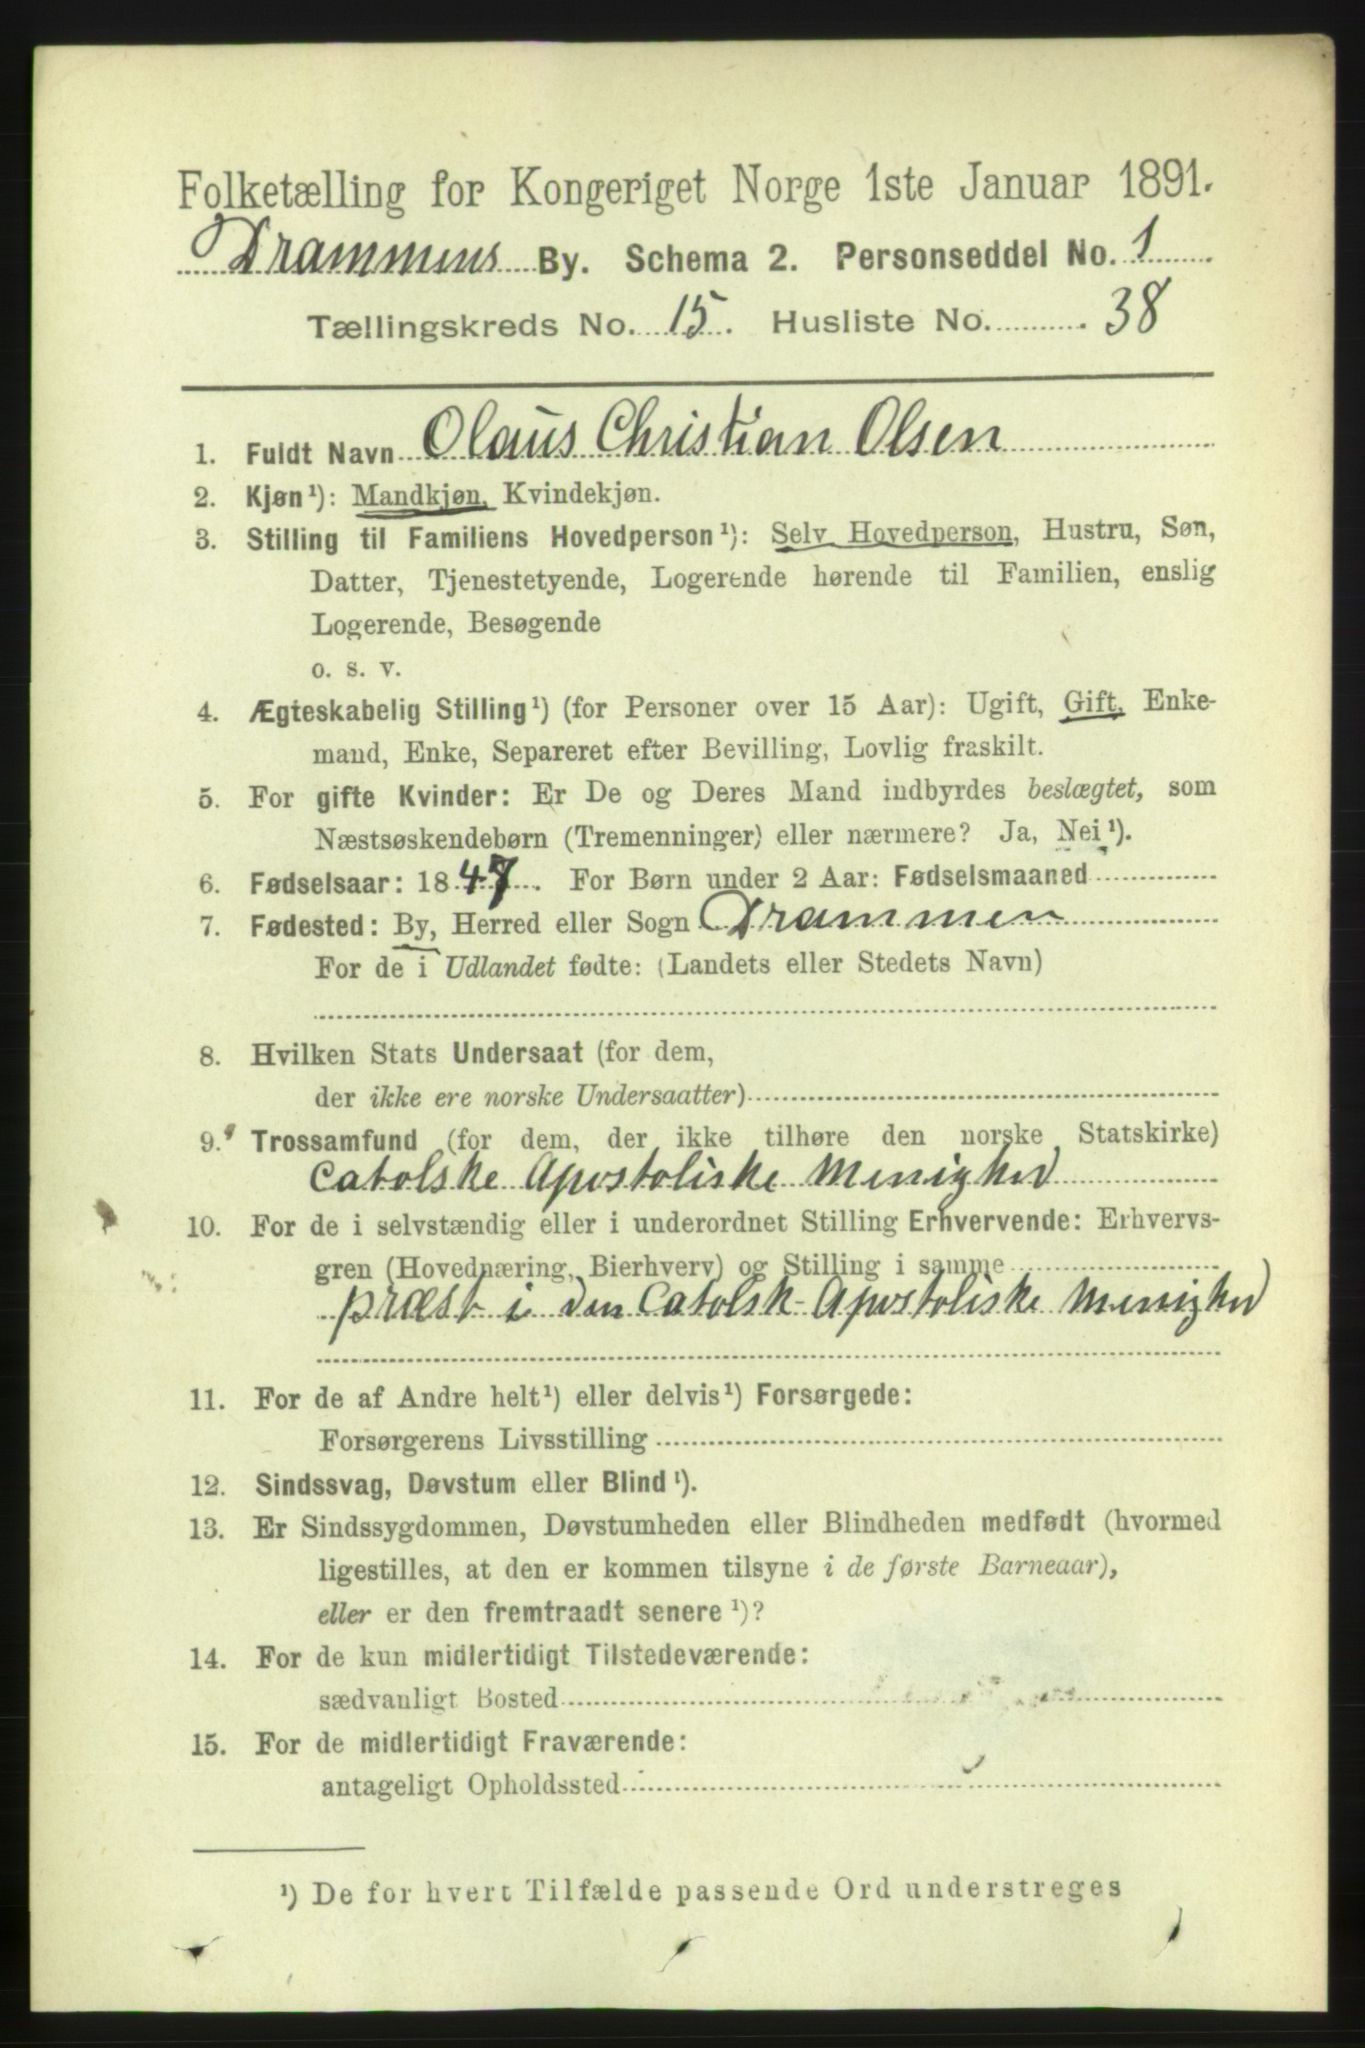 Folketælling for Kongeriget Norge 1ste Januar 1891.
Drammens By. Schema 2. Personseddel No. 1
Tællingskreds No. 15. Husliste No. 38
1. Fuldt Navn Olaus Christian Olsen
2. Kjøn¹): Mandkjøn, Kvindekjøn.
3. Stilling til Familiens Hovedperson¹): Selv Hovedperson, Hustru, Søn,
Datter, Tjenestetyende, Logerende hørende til Familien, enslig
Logerende, Besøgende
o. s. v.
4. Ægteskabelig Stilling¹) (for Personer over 15 Aar): Ugift, Gift, Enke-
mand, Enke, Separeret efter Bevilling, Lovlig fraskilt.
5. For gifte Kvinder: Er De og Deres Mand indbyrdes beslægtet, som
Næstsøskendebørn (Tremenninger) eller nærmere? Ja, Nei¹).
6. Fødselsaar: 1847. For Børn under 2 Aar: Fødselsmaaned
7. Fødested: By, Herred eller Sogn Drammen
For de i Udlandet fødte: (Landets eller Stedets Navn)
8. Hvilken Stats Undersaat (for dem,
der ikke ere norske Undersaatter)
9. Trossamfund (for dem, der ikke tilhøre den norske Statskirke)
Catolske Apostoliske Menighed
10. For de i selvstændig eller i underordnet Stilling Erhvervende: Erhvervs-
gren (Hovednæring, Bierhverv) og Stilling i samme
præst i den Catolsk-Apostoliske Menighed
11. For de af Andre helt¹) eller delvis¹) Forsørgede:
Forsørgerens Livsstilling
12. Sindssvag, Døvstum eller Blind¹).
13. Er Sindssygdommen, Døvstumheden eller Blindheden medfødt (hvormed
ligestilles, at den er kommen tilsyne i de første Barneaar),
eller er den fremtraadt senere¹)?
14. For de kun midlertidigt Tilstedeværende:
sædvanligt Bosted
15. For de midlertidigt Fraværende:
antageligt Opholdssted
¹) De for hvert Tilfælde passende Ord understreges